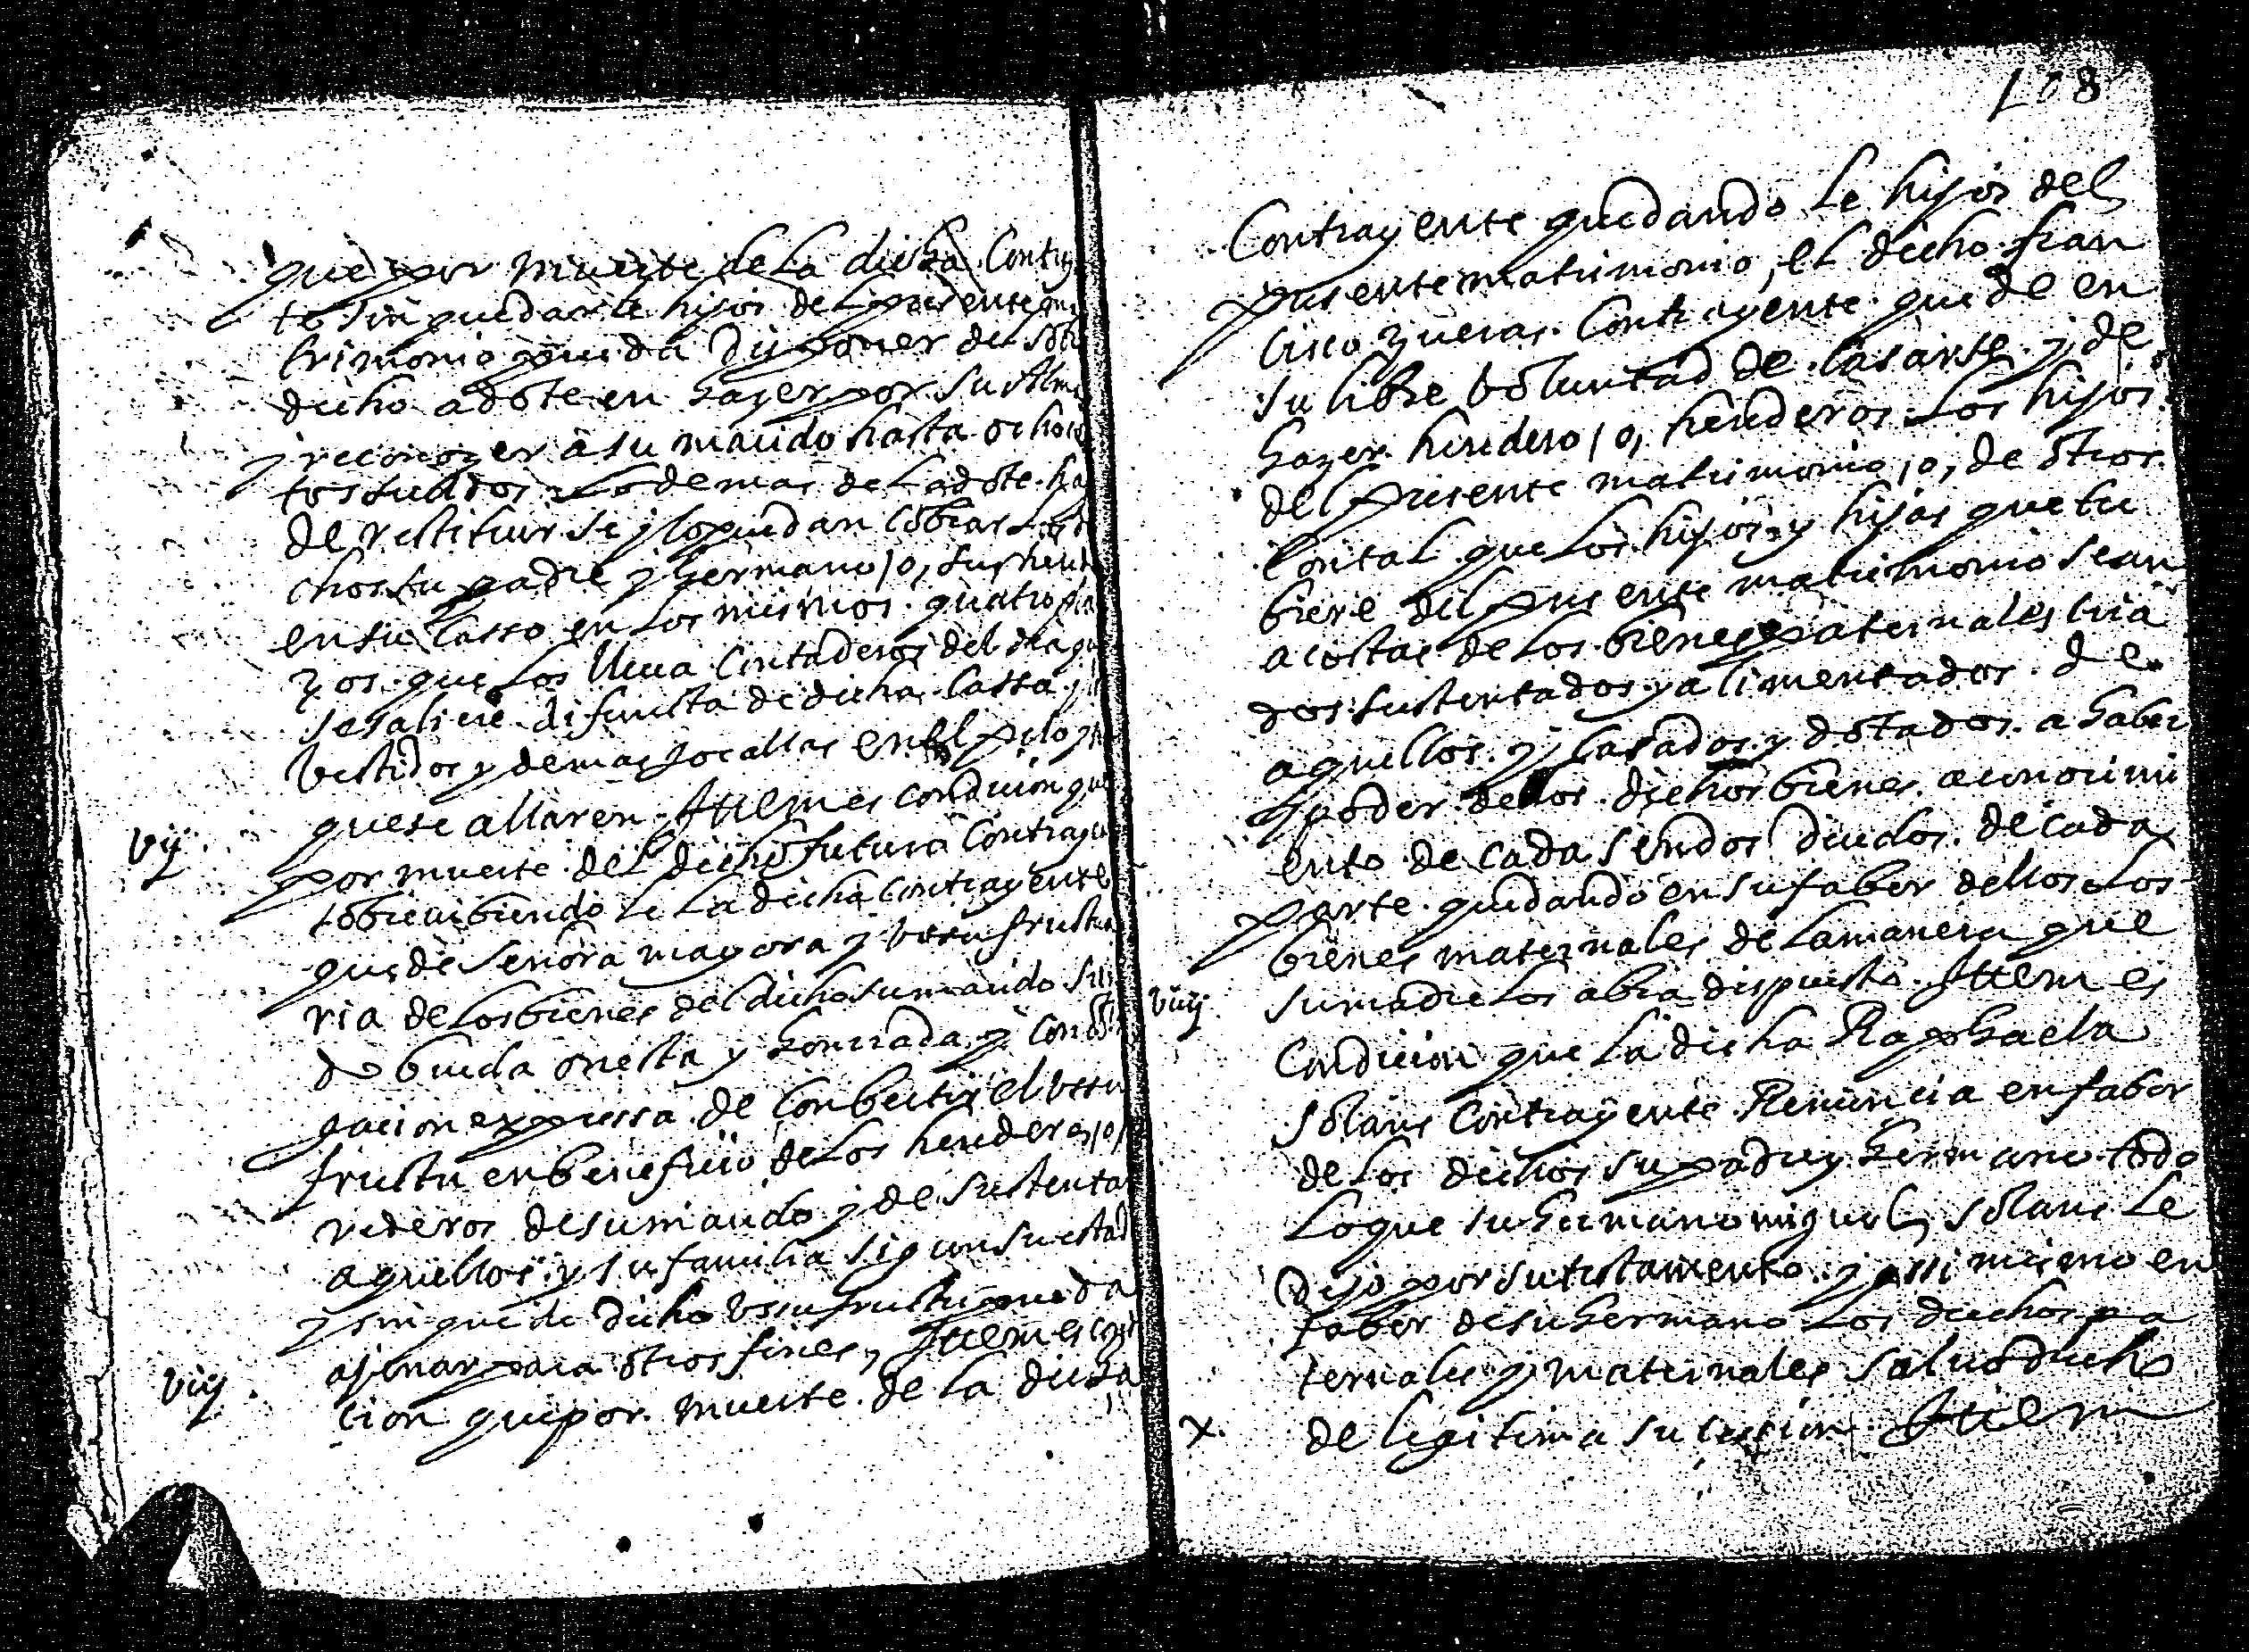 que por muerte de la dicha Contray
te sin quedarle hijos del presente ma
trimonio pueda Disponer del sobre
dicho adote en hazer por su Alma
y reconozer a su marido hasta ochoci
tos sueldos y lo demas del adote ha
de restituirse y lo puedan cobrar los di
chos su padre y hermano, o, sus hered
en su casso en los mismos quatro pla
zos que los lleva Contaderos del dia que
se saliere difuncta de dicha Cassa y
Vestidos y demas Jocallas en el pelo
que se allaren.. Ittem es condicion que
por muerte del dicho futuro Contraye
sobrevibiendole la dicha contrayente
quede Señora mayora y usufructua
ria de los bienes del dicho su marido
do biuda onesta y honrrada y con obli
gacion expressa de Conbertir el ussu
fructu en beneficio de los herederos, o,
rederos de su marido y de sustentar
aquellos y su familia sigun su estado
y sin que de dicho ussufructu pueda
agenar para otros fines, Ittem es condi
cion que por muerte de la dicha
vij
viij
108
Contrayente quedandole hijos del
presente matrimonio, el dicho fran
cisco zueras Contrayente quede en
su libre boluntad de casarse y de
hazer heredero, o, herederos los hijos
del presente matrimonio, o, de otros
Con tal que los hijos y hijas que tu
biere del presente matrimonio sean
a costas de los bienes paternales cria
dos sustentados y alimentados de
aquellos y casados y dotados a haber
y poder de los dichos bienes a conocimi
ento de cada sendos deudos de cada
parte quedando en su fabor dellos los
bienes maternales de la manera que
su madre los abia dispuesto. Ittem es
Condicion que la dicha Raphaela
Solans Contrayente Renuncia en fabor
de los dichos su padre y hermano todo
lo que su hermano miguel Solans le
Dejo por su testamento y assi mismo en
fabor de su hermano los drechos pa
ternales y maternales salvo drecho
de legitima sucession Ittem
viiij
x.